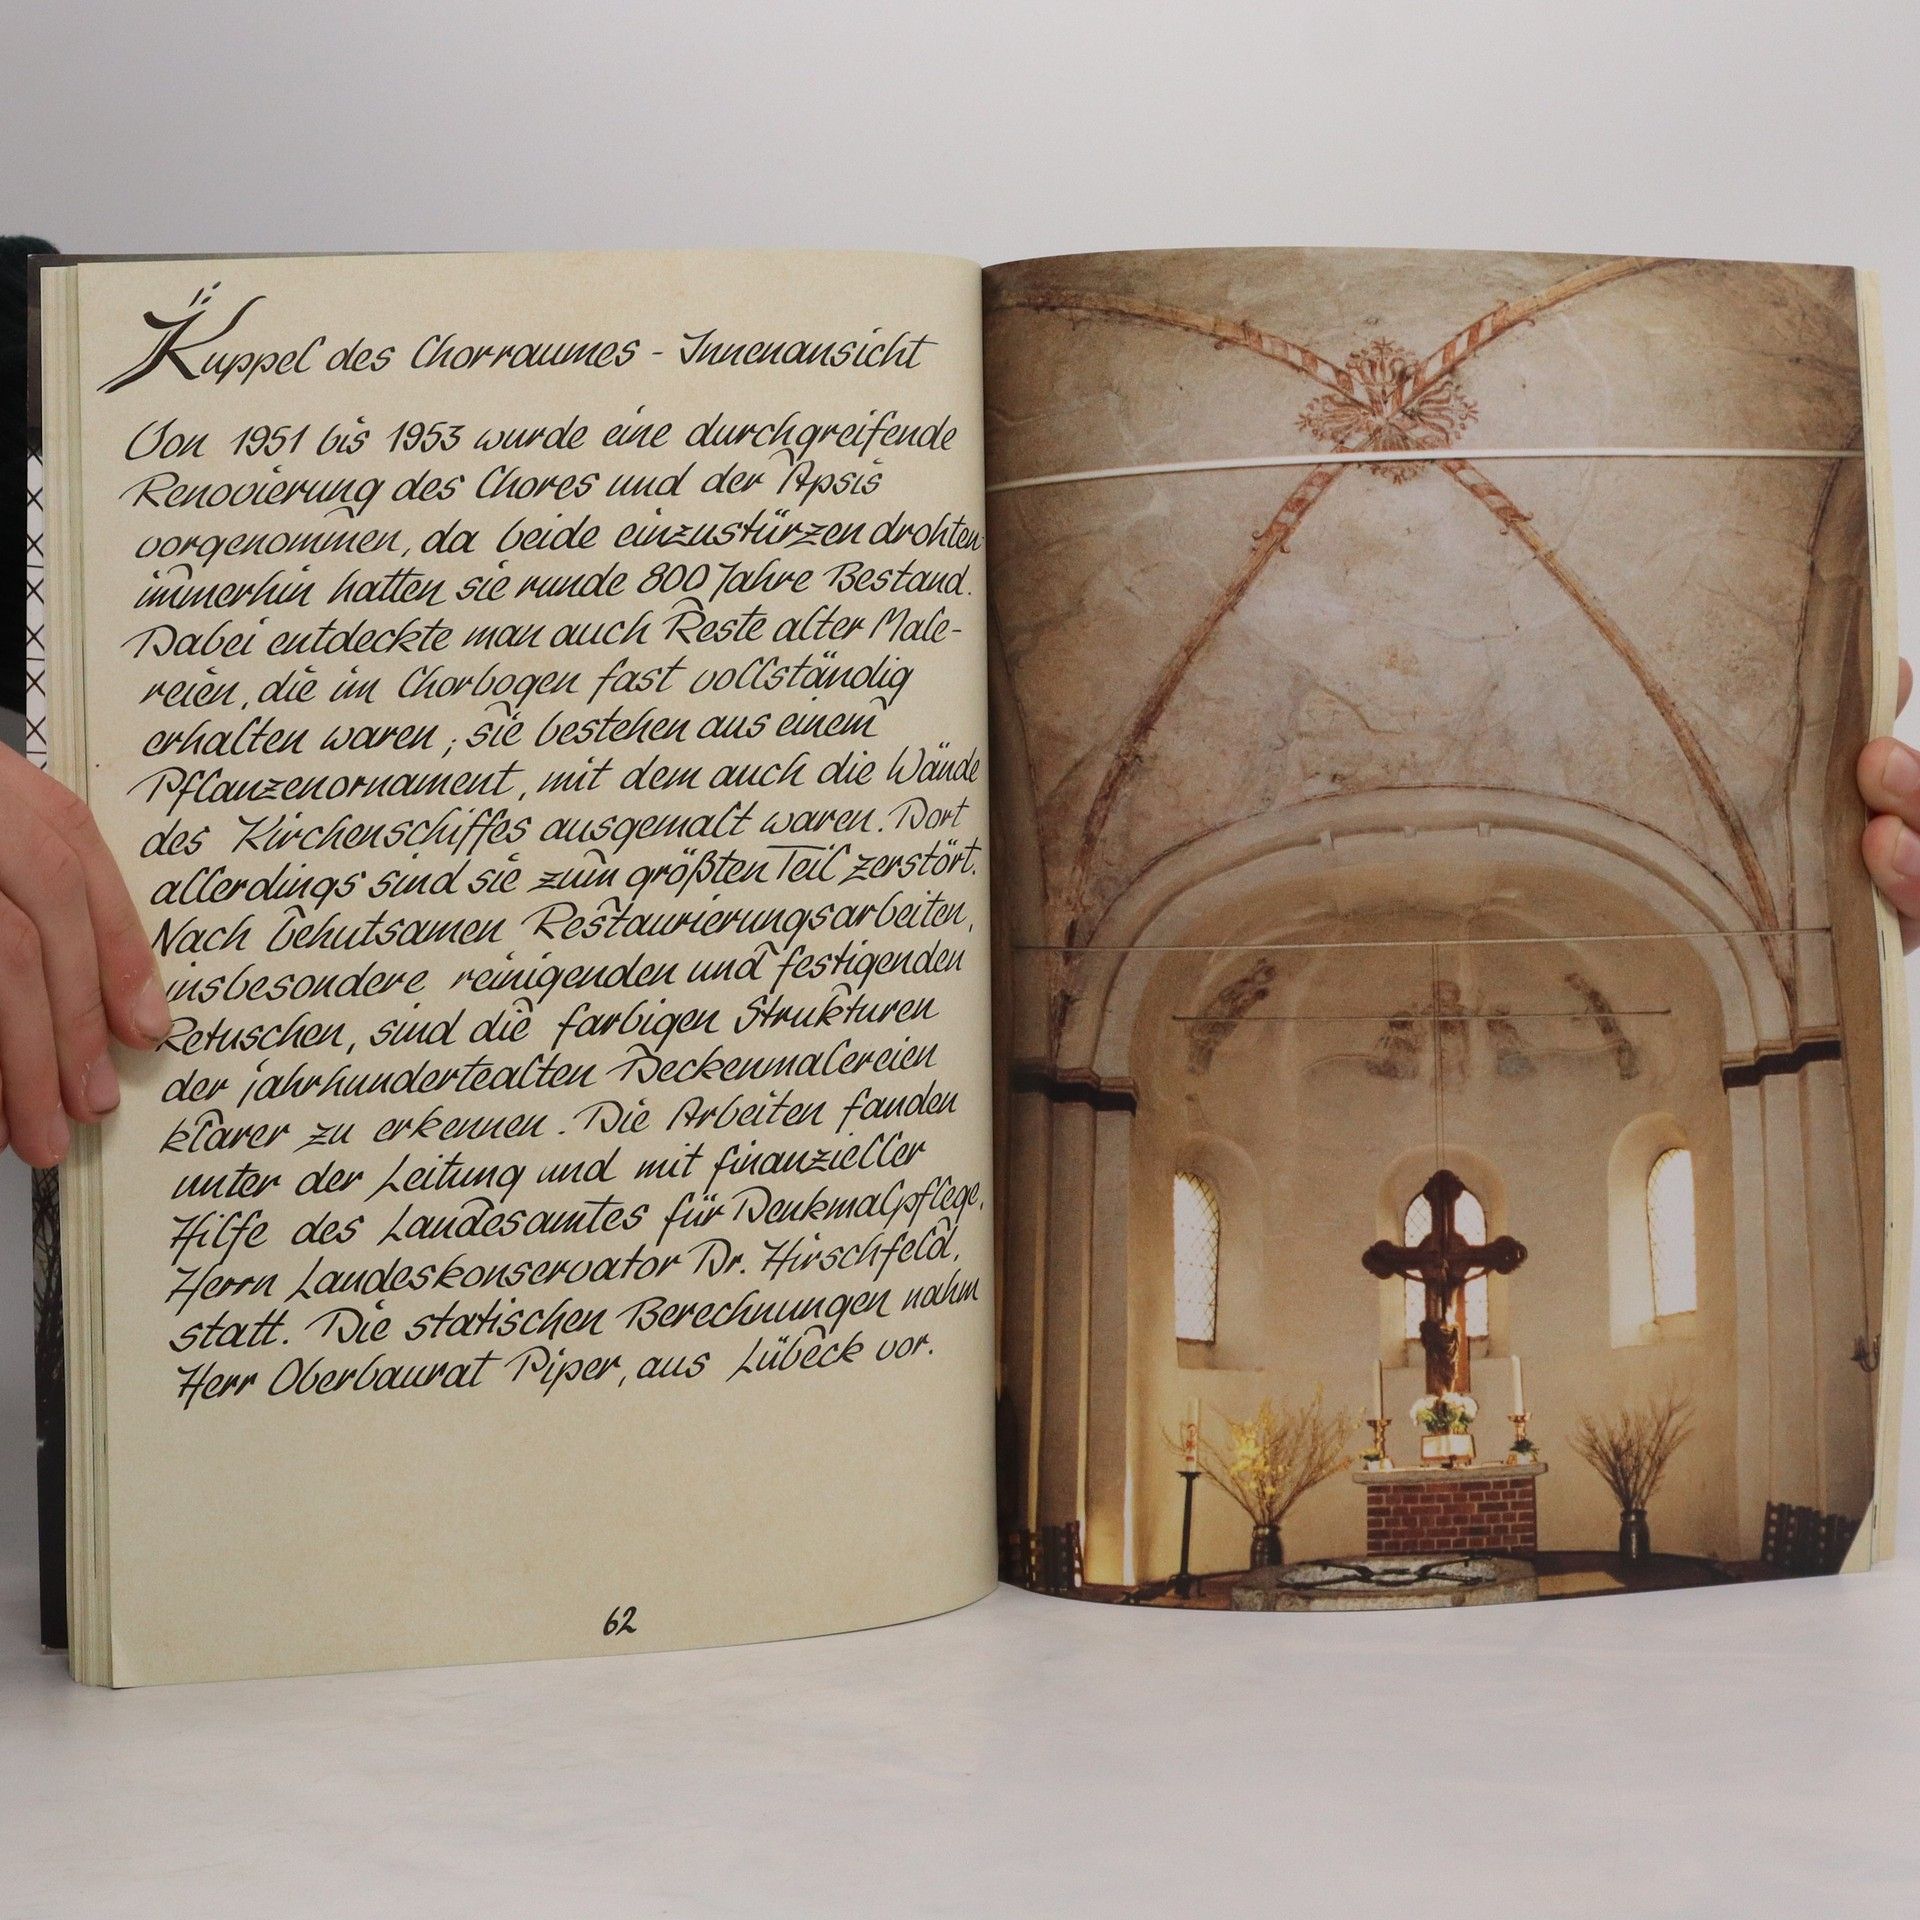 Kuppel des Chorraumes - Innenansicht
Von 1951 bis 1953 wurde eine durchgreifende
Renovierung des Chores und der Apsis
vorgenommen, da beide einzustürzen drohten
immerhin hatten sie runde 800 Jahre Bestand.
Dabei entdeckte man auch Reste alter Male-
reien, die im Chorbogen fast vollständig
erhalten waren; sie bestehen aus einem
Pflanzenornament, mit dem auch die Wände
des Kirchenschiffes ausgemalt waren. Dort
allerdings sind sie zum größten Teil zerstört.
Nach behutsamen Restaurierungsarbeiten,
insbesondere reinigenden und festigenden
Retuschen, sind die farbigen Strukturen
der jahrhundertealten Deckenmalereien
klarer zu erkennen. Die Arbeiten fanden
unter der Leitung und mit finanzieller
Hilfe des Landesamtes für Denkmalpflege,
Herrn Landeskonservator Dr. Hirschfeld,
statt. Die statischen Berechnungen nahm
Herr Oberbaurat Piper, aus Lübeck vor.
62